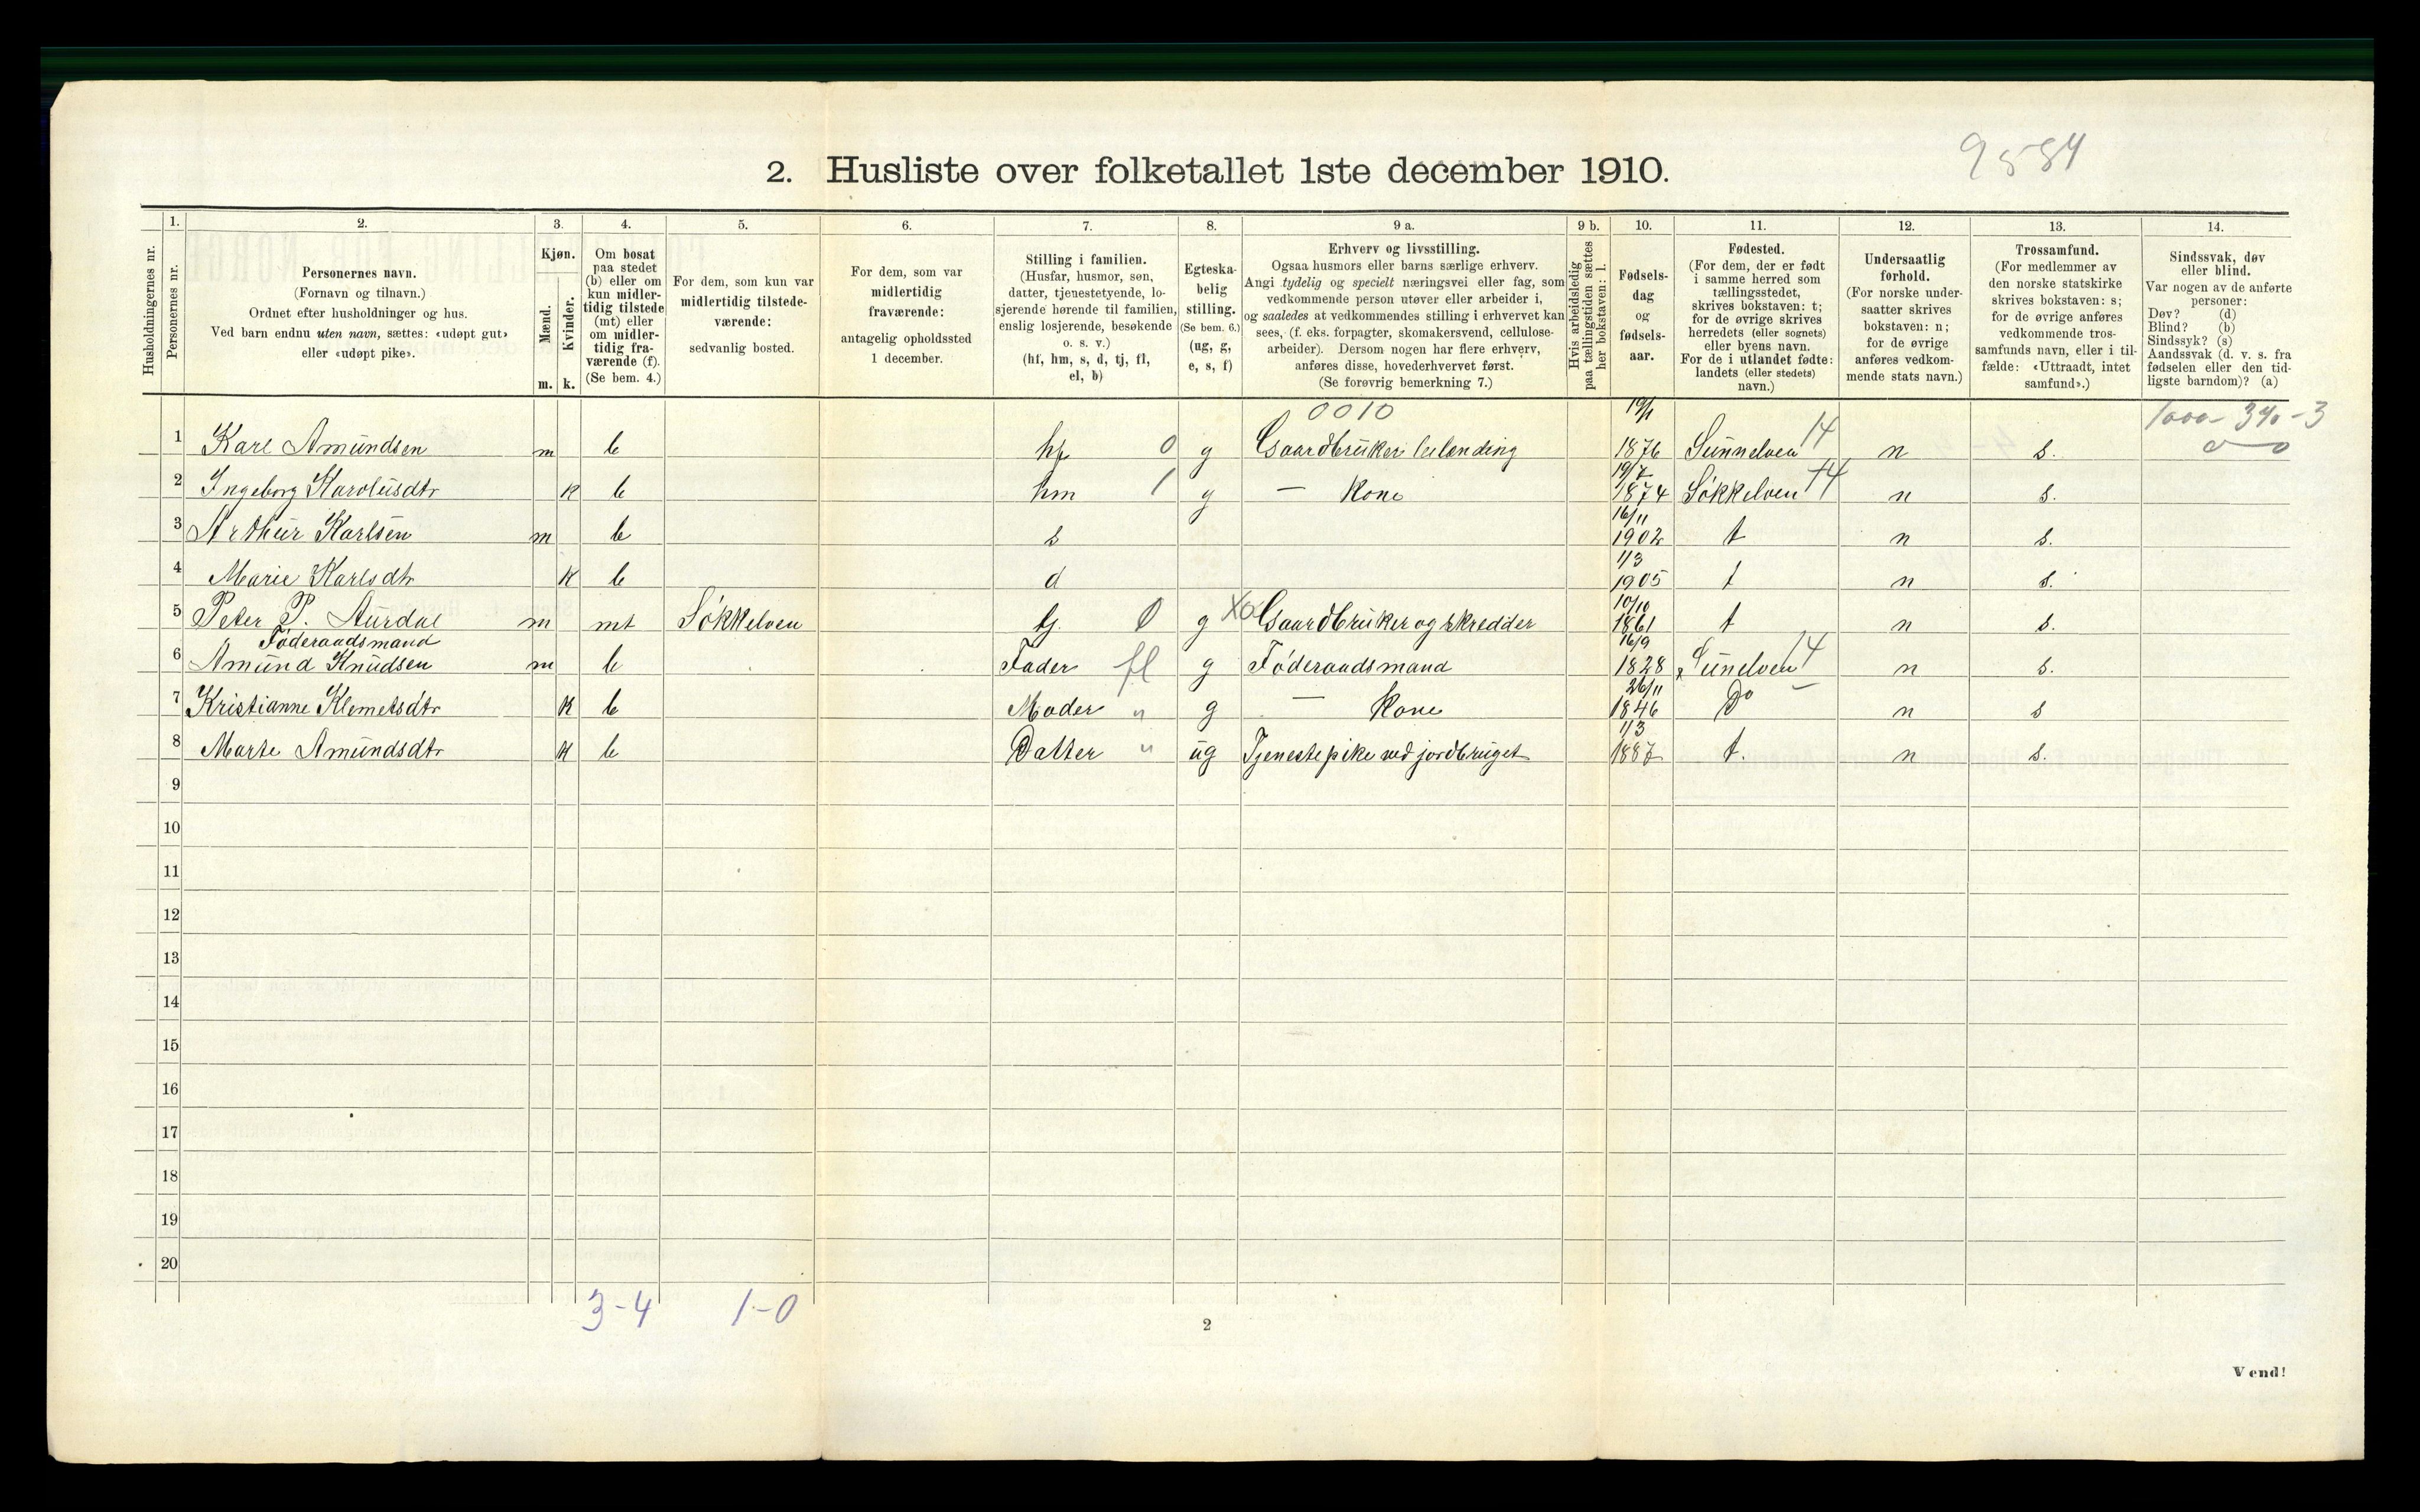 9584
2. Husliste over folketallet 1ste december 1910.
Husholdningernes nr.
1. Personernes nr.
2. Personernes navn. (Fornavn og tilnavn.) Ordnet efter husholdninger og hus. Ved barn endnu uten navn, sættes: «udøpt gut» eller «udøpt pike».
3. Kjøn. Mænd. m. Kvinder. k.
4. Om bosat paa stedet (b) eller om kun midlertidig tilstede (mt) eller om midlertidig fraværende (f). (Se bem. 4.)
5. For dem, som kun var midlertidig tilstedeværende: sedvanlig bosted.
6. For dem, som var midlertidig fraværende: antagelig opholdssted 1 december.
7. Stilling i familien. (Husfar, husmor, søn, datter, tjenestetyende, losjerende hørende til familien, enslig losjerende, besøkende o. s. v.) (hf, hm, s, d, tj, fl, el, b)
8. Egteskabelig stilling. (Se bem. 6.) (ug, g, e, s, f)
9 a. Erhverv og livsstilling. Ogsaa husmors eller barns særlige erhverv. Angi tydelig og specielt næringsvei eller fag, som vedkommende person utøver eller arbeider i, og saaledes at vedkommendes stilling i erhvervet kan sees, (f. eks. forpagter, skomakersvend, cellulosearbeider). Dersom nogen har flere erhverv, anføres disse, hovederhvervet først. (Se forøvrig bemerkning 7.)
9 b. Hvis arbeidsledig paa tællingstiden sættes her bokstaven: l.
10. Fødselsdag og fødselsaar.
11. Fødested. (For dem, der er født i samme herred som tællingsstedet, skrives bokstaven: t; for de øvrige skrives herredets (eller sognets) eller byens navn. For de i utlandet fødte: landets (eller stedets) navn.)
12. Undersaatlig forhold. (For norske undersaatter skrives bokstaven: n; for de øvrige anføres vedkommende stats navn.)
13. Trossamfund. (For medlemmer av den norske statskirke skrives bokstaven: s; for de øvrige anføres vedkommende trossamfunds navn, eller i tilfælde: «Uttraadt, intet samfund».)
14. Sindssvak, døv eller blind. Var nogen av de anførte personer: Døv? (d) Blind? (b) Sindssyk? (s) Aandssvak (d. v. s. fra fødselen eller den tidligste barndom)? (a)
0010
1 Karl Amundsen m b hf 0 g Gaardbruker leilending 19/1 1876 Sunnelven 14 n s.
2 Ingeborg Karolusdtr k b hm 1 g — Kone 19/7 1874 Søkkelven 14 n s.
3 Arthur Karlsen m b s 16/11 1902 t n s.
4 Marie Karlsdtr k b d 1/3 1905 t n s.
5 Peter P. Aurdal m mt Søkkelven tj. 0 g Gaardbruker og skredder 10/10 1861 t n s.
Føderaadsmand
6 Amund Knudsen m b Fader fl g Føderaadsmand 16/9 1828 Sunelven 14 n s.
7 Kristianne Klemetsdtr k b Moder " g — Kone 26/11 1846 Do n s
8 Marte Amundsdtr k b Datter " ug Tjenestepike ved jordbruget 1/3 1887 t. n s.
9
10
11
12
13
14
15
16
17
18
19
20
3-4 1-0
2
Vend!